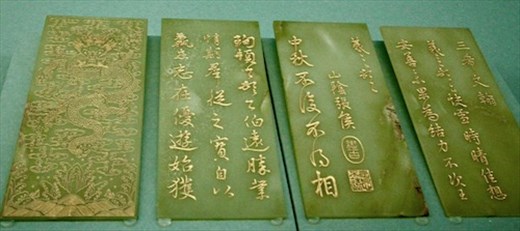 三希文翰
羲之頓首快雪時晴佳想
安善未果為結力不次王
羲之頓首
山陰張侯
中秋不復不得相
珣頓首頓首伯遠勝業
情期羣從之寶自以
羸患志在優遊始獲